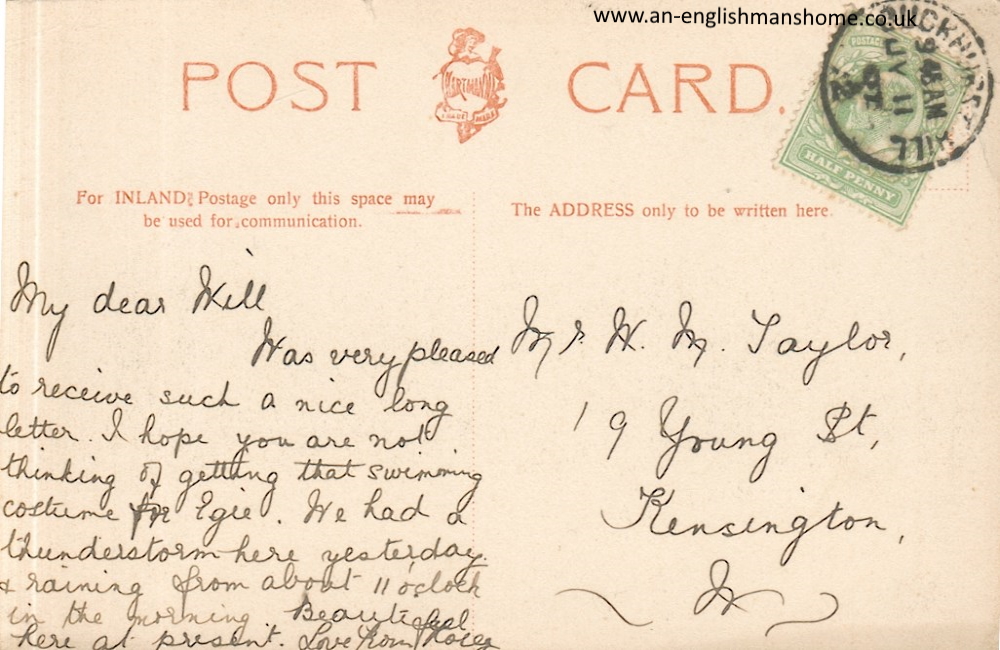 www.an-englishmanshome.co.uk
POST CARD.
HARTMANN
TRADE MARK
HALF PENNY
BUCKHURST HILL
9 45 AM
JY 11
For INLAND Postage only this space may
be used for communication.
The ADDRESS only to be written here.
My dear Will
Was very pleased
to receive such a nice long
letter. I hope you are not
thinking of getting that swimming
costume for Egie. We had a
thunderstorm here yesterday.
& raining from about 11 o'clock
in the morning. Beautiful
here at present. Love from
Mr. W. M. Taylor,
19 Young St,
Kensington,
W